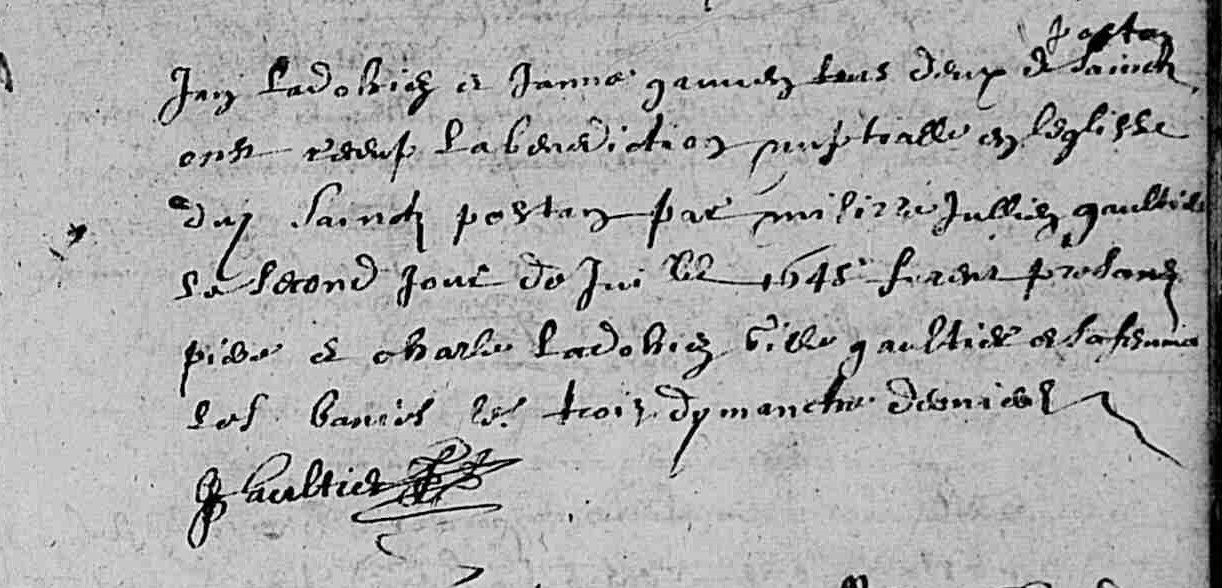 postan
Jan Ladovicz et Janne gauven tous deux de Sainct
ont receup la benediction nuptialle en leglisse
duj Sainct postan par missire Jullien gaultier
le second jour de Jui 1648 furent presens
piere et charle Ladovicz Gille gaultier et sa femme
les banies les trois dymanche deniers
J Gaultier